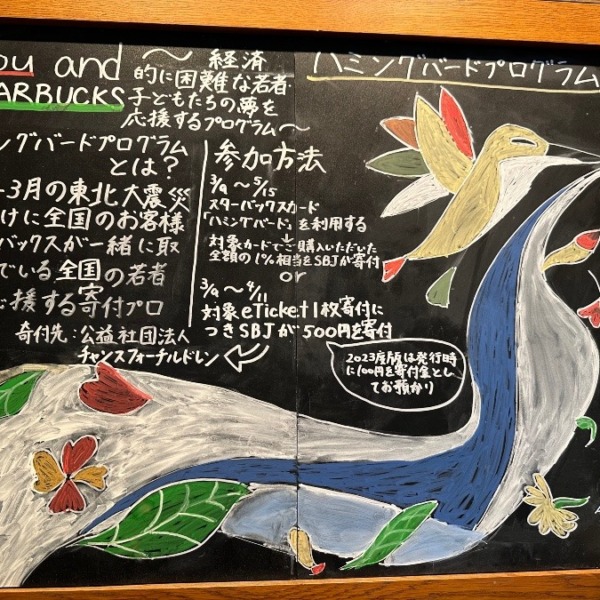 ou and
ARBUCKS
〜 経済
的に困難な若者・
子どもたちの夢を
応援するプログラム〜
ハミングバードプログラム
ングバードプログラム
とは?
3月の東北大震災
けに全国のお客様
バックスが一緒に取
でいる全国の若者
援する寄付プロ
寄付先:公益社団法人
チャンスフォーチルドレン
参加方法
3/9〜5/15
スターバックスカード
「ハミングバード」を利用する
対象カードでご購入いただいた
全額の1%相当をSBJが寄付
or
3/9〜4/11
対象eTicket1枚寄付に
つきSBJが500円を寄付
2023度版は発行時
に100円を寄付金とし
てお預かり